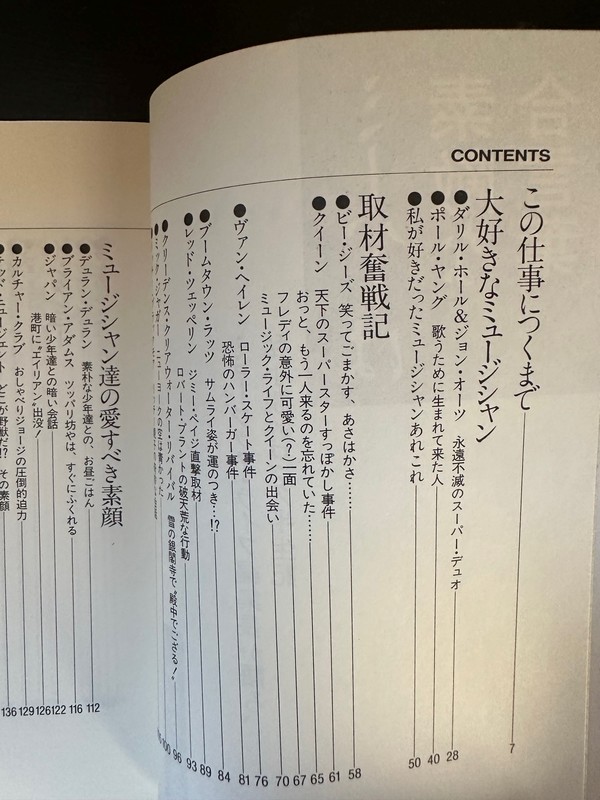 CONTENTS
この仕事につくまで 7
大好きなミュージシャン
●ダリル・ホール&ジョン・オーツ 永遠不滅のスーパー・デュオ 28
●ポール・ヤング 歌うために生まれて来た人 40
●私が好きだったミュージシャンあれこれ 50
取材奮戦記
●ビー・ジーズ 笑ってごまかす、あさはかさ…… 58
●クイーン 天下のスーパースターすっぽかし事件 61
おっと、もう一人来るのを忘れていた…… 65
フレディの意外に可愛い(?)一面 67
ミュージック・ライフとクイーンの出会い 70
●ヴァン・ヘイレン ローラー・スケート事件 76
恐怖のハンバーガー事件 81
●ブームタウン・ラッツ サムライ姿が運のつき…!? 84
●レッド・ツェッペリン ジミー・ペイジ直撃取材 89
ロバート・プラントの破天荒な行動 93
●クリーデンス・クリアウォーター・リバイバル 雪の銀閣寺で“殿中でござる!” 96
●ミック・ジャガー ニューヨークの空は青かった 100
ミュージシャン達の愛すべき素顔
●デュラン・デュラン 素朴な少年達との、お昼ごはん 112
●ブライアン・アダムス ツッパリ坊やは、すぐにふくれる 116
●ジャパン 暗い少年達との暗い会話 122
港町に“エイリアン”出没! 126
●カルチャー・クラブ おしゃべりジョージの圧倒的迫力 129
●テッド・ニュージェント どこが野獣だ!? その素顔 136